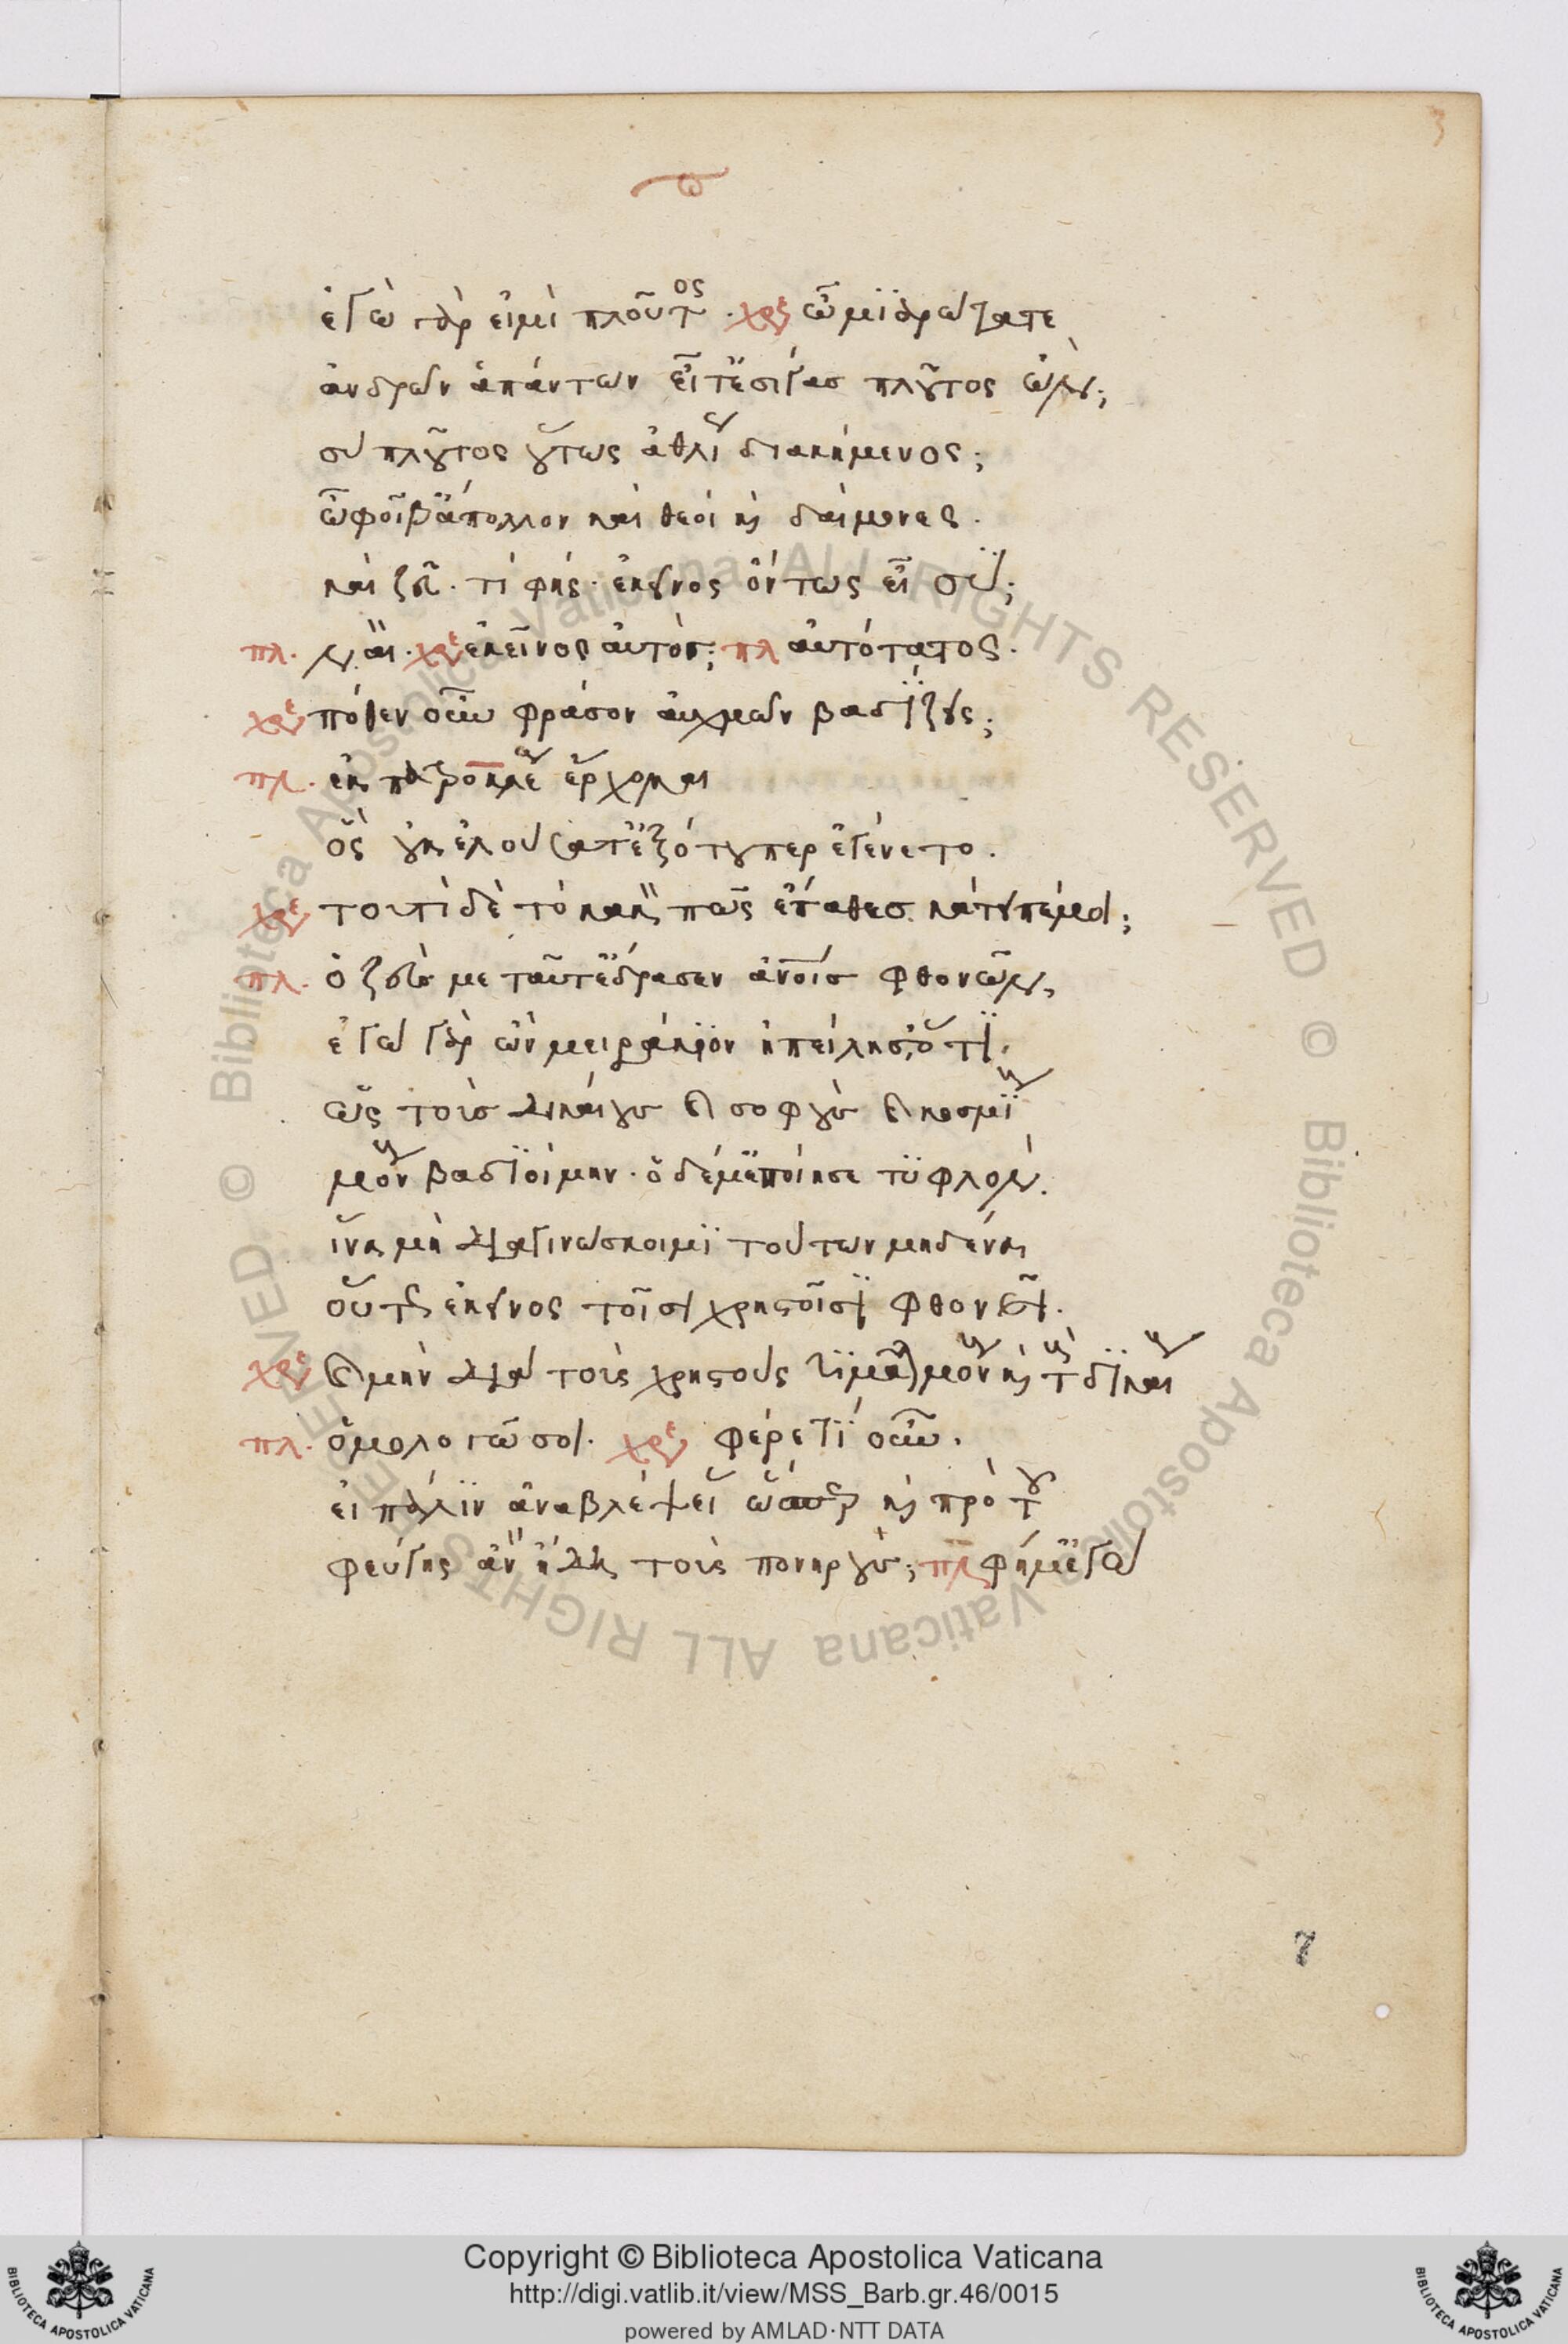 3
ἐγὼ γὰρ εἰμὶ πλοῦτος. χρε ὦ μιαρώτατε
ἀνδρῶν ἁπάντων εἶτ' ἐσίγας πλοῦτος ὤν;
σὺ πλοῦτος οὕτως ἀθλίως διακείμενος;
ὦ φοῖβ' ἄπολλον καὶ θεοὶ καὶ δαίμονες.
καὶ ζεῦ. τί φής. ἐκεῖνος ὄντως εἶ σύ;
πλ. ναί. χρε ἐκεῖνος αὐτός; πλ αὐτότατος.
χρε πόθεν οὖν φράσον αὐχμῶν βαδίζεις;
πλ. ἐκ πατροκλέους ἔρχομαι
ὃς οὐκ ἐλούσατ' ἐξότουπερ ἐγένετο.
χρε τουτὶ δὲ τὸ κακὸν πῶς ἔπαθες κάτειπέ μοι;
πλ. ὁ ζεύς με ταῦτ' ἔδρασεν ἀνοις φθονῶν,
ἐγὼ γὰρ ὢν μειράκιον ἠπείλησ' ὅτι.
ὡς τοὺς δικαίους καὶ σοφοὺς καὶ κοσμίους
μόνους βαδιοίμην. ὁ δέ μ' ἐποίησε τυφλόν.
ἵνα μὴ διαγινώσκοιμι τούτων μηδένα
οὕτως ἐκεῖνος τοῖσι χρηστοῖσι φθονεῖ.
χρε καὶ μὴν διὰ τοὺς χρηστούς τιμᾶται μόνους καὶ τοὺς δικαίους
πλ. ὁμολογῶ σοι. χρε φέρε τί οὖν.
εἰ πάλιν ἀναβλέψειας ὥσπερ καὶ πρὸ τοῦ
φεύγοις ἂν ἤδη τοὺς πονηρούς; πλ φήμ' ἐγώ
7
© Biblioteca Apostolica Vaticana ALL RIGHTS RESERVED © Biblioteca Apostolica Vaticana ALL RIGHTS RESERVED
Copyright © Biblioteca Apostolica Vaticana
http://digi.vatlib.it/view/MSS_Barb.gr.46/0015
powered by AMLAD·NTT DATA
BIBLIOTECA APOSTOLICA VATICANA
BIBLIOTECA APOSTOLICA VATICANA